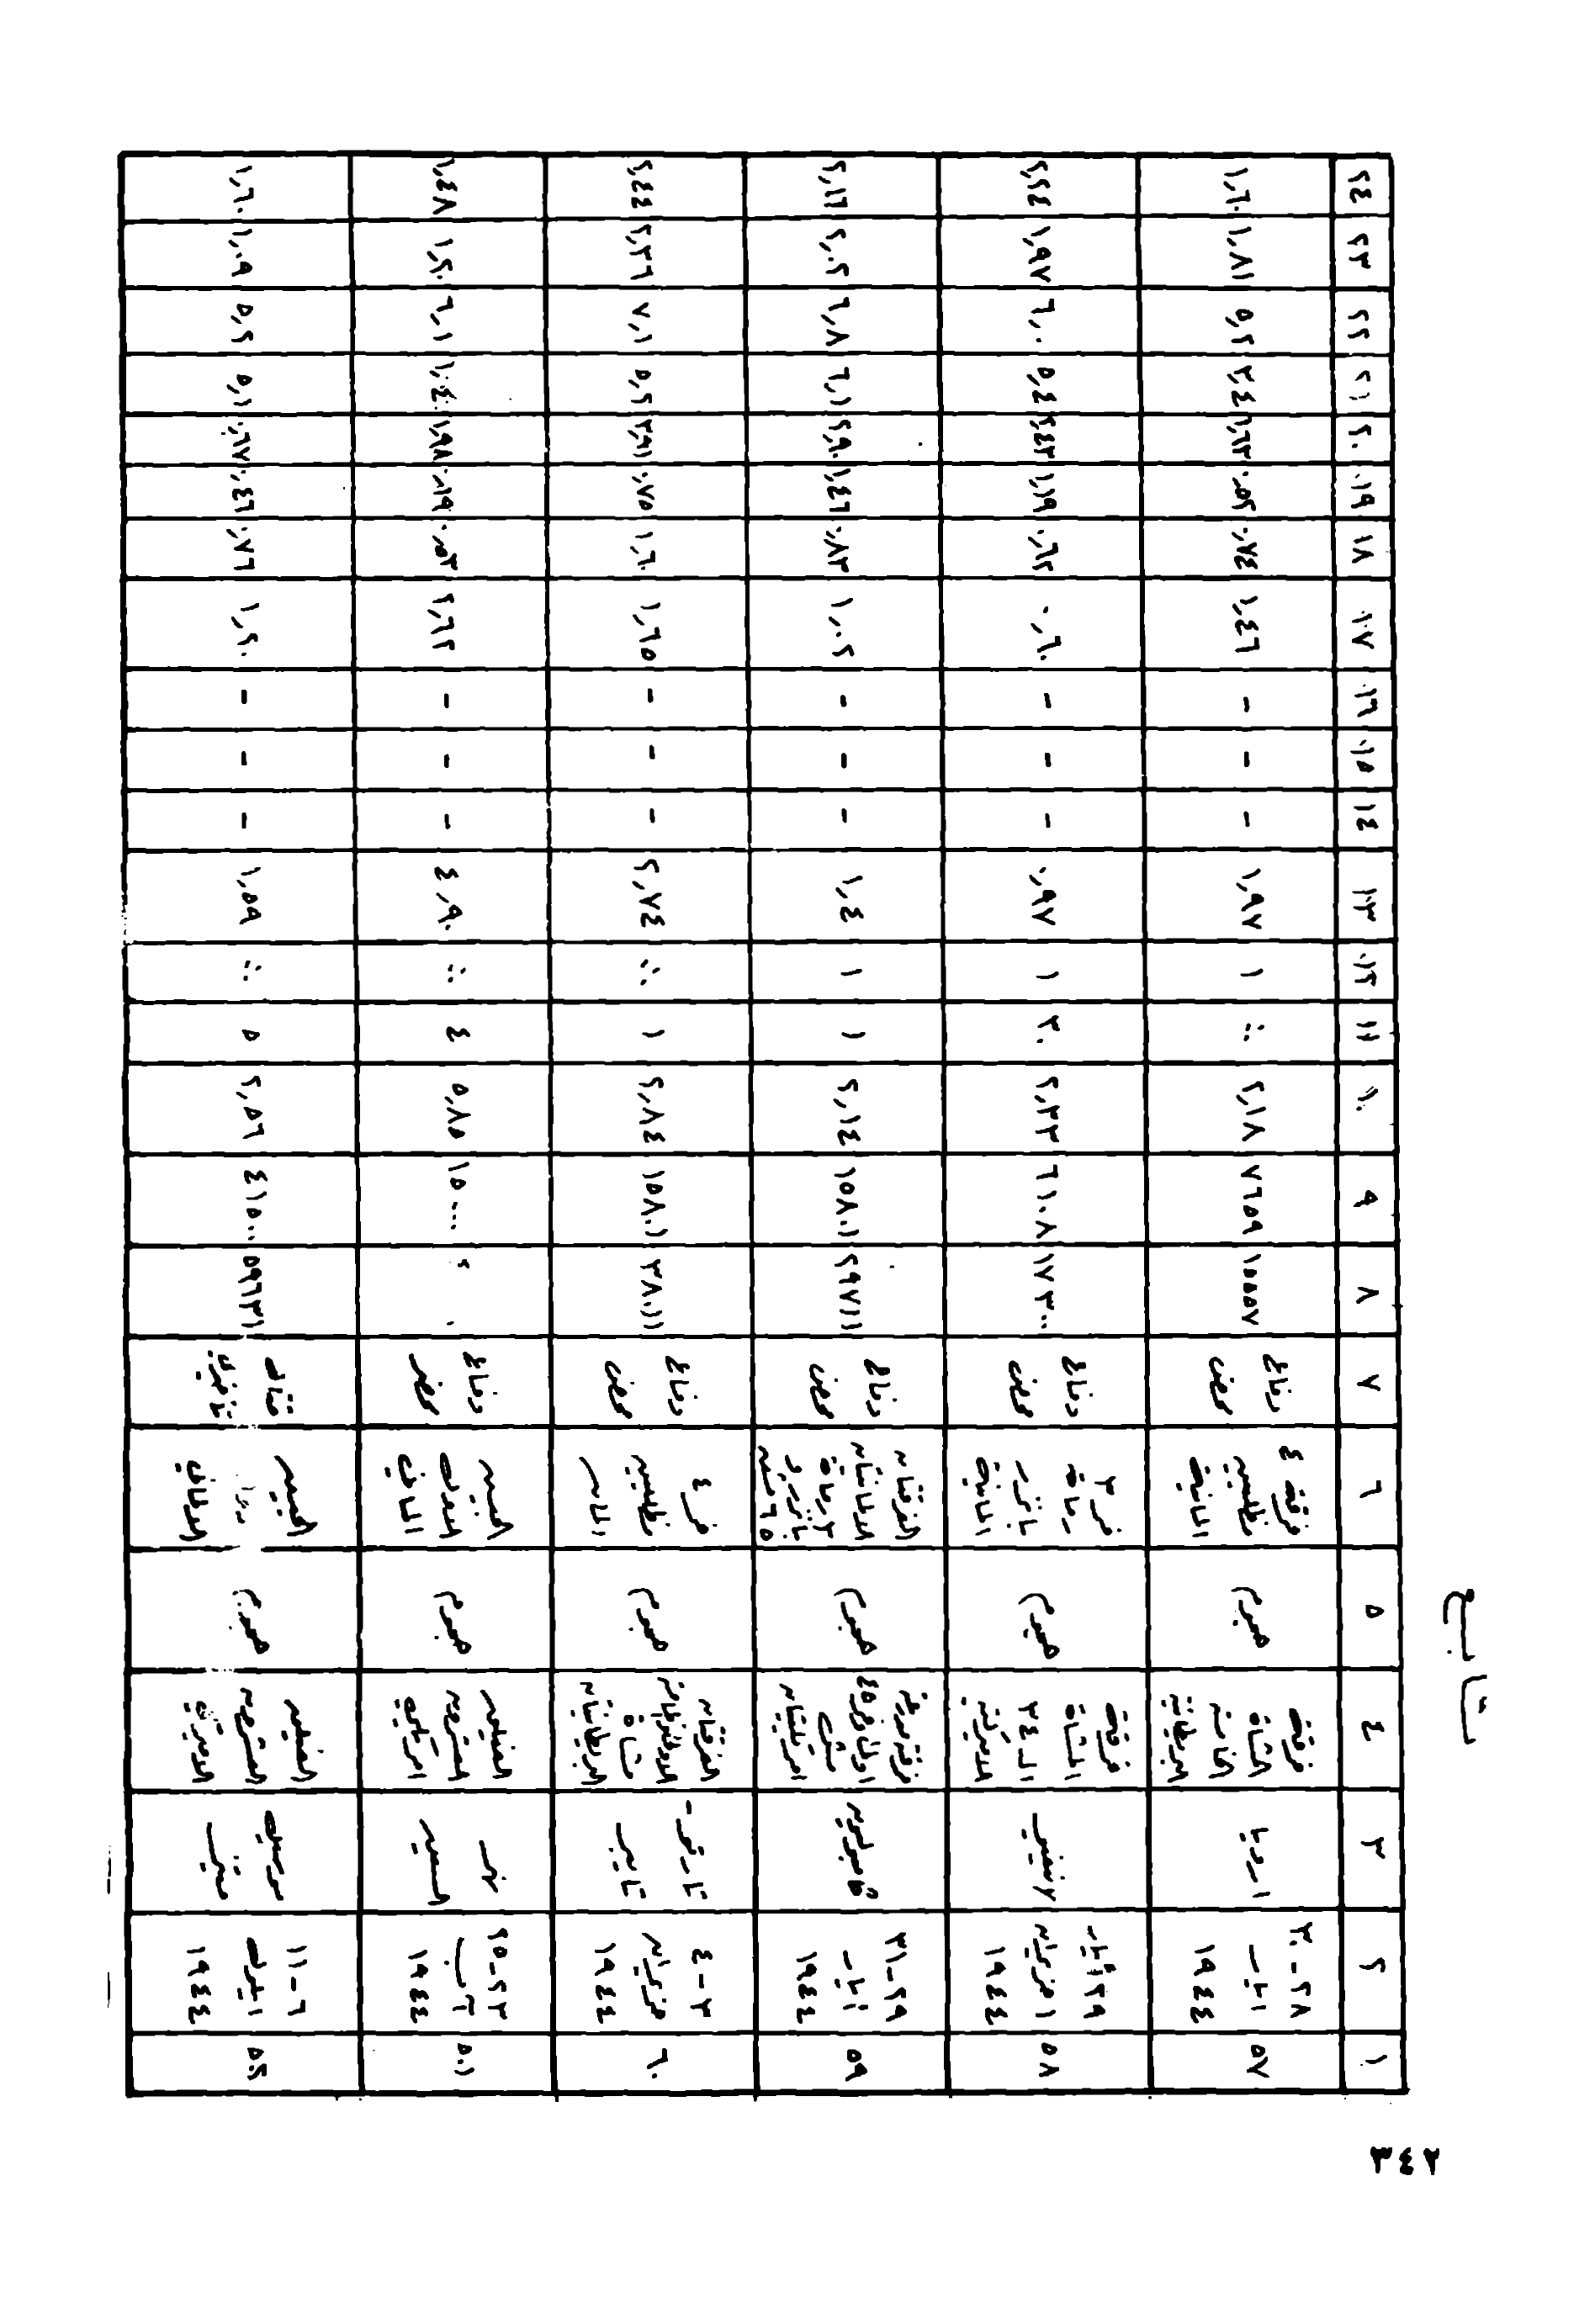 ٣٤٢
تابع
١ ٢ ٣ ٤ ٥ ٦ ٧ ٨ ٩ ١٠ ١١ ١٢ ١٣ ١٤ ١٥ ١٦ ١٧ ١٨ ١٩ ٢٠ ٢١ ٢٢ ٢٣ ٢٤
٥٧ ٢٨-٣٠ ايار ١٩٤٤ ارديا فرقة المشاة الخامسة البريطانية هجوم فرقة ٤ مظليين المانية دفاع عرضي ١٥٥٥٧ ٧٦٥٩ ٢,١٨ ∴ ١ ١,٩٧ - - - ١,٤٦ ٠,٧٤ ٠,٥٢ ١,٦٣ ٣,٤ ٥,٢ ١,٨١ ١,٦٠
٥٨ ٢٩ أيار ١ حزيران ١٩٤٤ لانيفيو فرقة المشاة الـ ٣٤ الاميركية هجوم فر ٣ رماة بانزر المانية دفاع عرضي ١٧٣٠٠ ٦١٠٨ ٢,٣٣ ٣٠ ١ ٠,٩٧ - - - ٠,٦٠ ٠,٦٢ ١,١٩ ٢,٤٣ ٥,٤ ٦,٠٠ ١,٩٧ ٢,٢٤
٥٩ ٢٩-٣١ أيار ١٩٤٤ هجوم الفرقتان الالمانيتان ٣ رماة بانزر و ٦٥ دفاع عرضي ٢٩٧١١ ١٥٨٠١ ٢,١٤ ١ ١ ١,٤ - - - ١,٠٢ ٠,٨٣ ١,٤٦ ٢,٩٠ ٦,١ ٦,٨ ٢,٠٢ ٢,١٦
٦٠ ٣-٤ حزيران ١٩٤٤ تارتو- تايبر الفرقتان مشاة البريطانيتان هجوم فر ٤ مظليين دفاع عرضي ٣٨٠١١ ١٥٨٠١ ٢,٨٤ ١ ∴ ٢,٧٤ - - - ١,٦٥ ١,٦٠ ٠,٧٥ ٣,٩١ ٥,٢ ٧,١ ٢,٣٦ ٢,٤٤
٥٠١ ٢٣-٢٥ آب ١٩٤٤ نهر السين الفيلق العشرون اميركية هجوم الجيش الاول الماني دفاع عرضي ؟ ١٥٠٠٠ ٥,٨٥ ٤ ∴ ٤,٩٠ - - - ٢,٦٢ ٠,٥٣ ٠,١٩ ١,٩٨ ١,٠٤ ٦,١ ١,٢٠ ١,٤٨
٥٠٢ ٦-١١ ايلول ١٩٤٤ موسيل ميتز الفيلق العشرون الاميركي هجوم الجيش الاول الالماني قتال تأخيري ٥٩٦٣١ ٤١٥٠٠ ٢,٥٦ ٥ ∴ ١,٥٩ - - - ١,٢٠ ٠,٧٦ ٠,٤٦ ٠,٦٧ ٥,١ ٥,٢ ١,٠٩ ١,٦٠